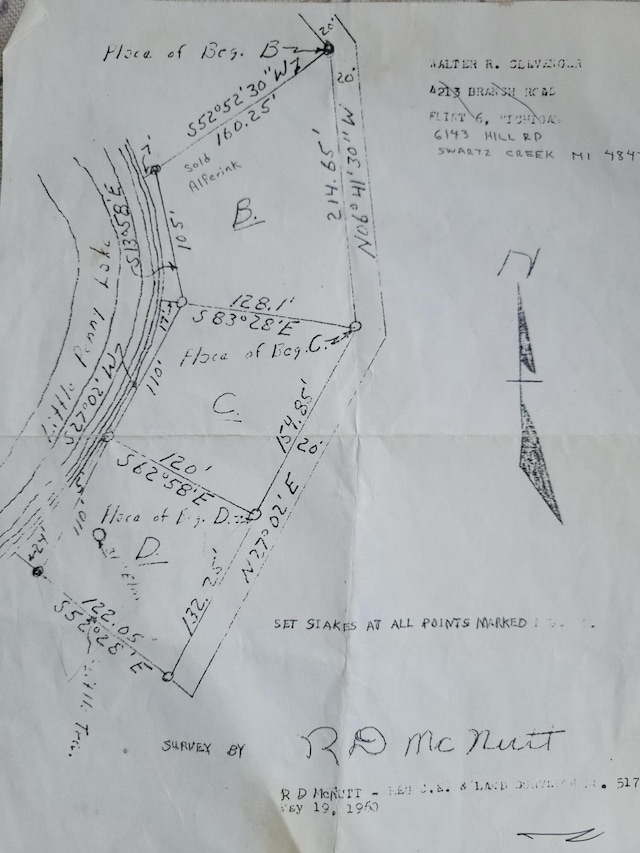 20'
Place of Beg. B
20'
S52°52'30"W
160.25'
7'
Sold
Alferink
B.
WALTER R.
4213 BRANCH ROAD
FLINT 6, MICHIGAN
6143 HILL RD
SWARTZ CREEK MI 484
214.65'
N06°41'30"W
S13°58'E
105'
Little Penny Lake
17'
128.1'
S 83°28'E
Place of Beg. C.
N
S27°02'W
110'
C.
154.85'
20'
120'
S62°58'E
Place of Beg. D.
N27°02'E
110'
D.
24'
132.25'
122.05'
S53°28'E
SET STAKES AT ALL POINTS MARKED
SURVEY BY
RD McNutt
R D McNUTT - REG C.E. & LAND 517
May 19, 1960